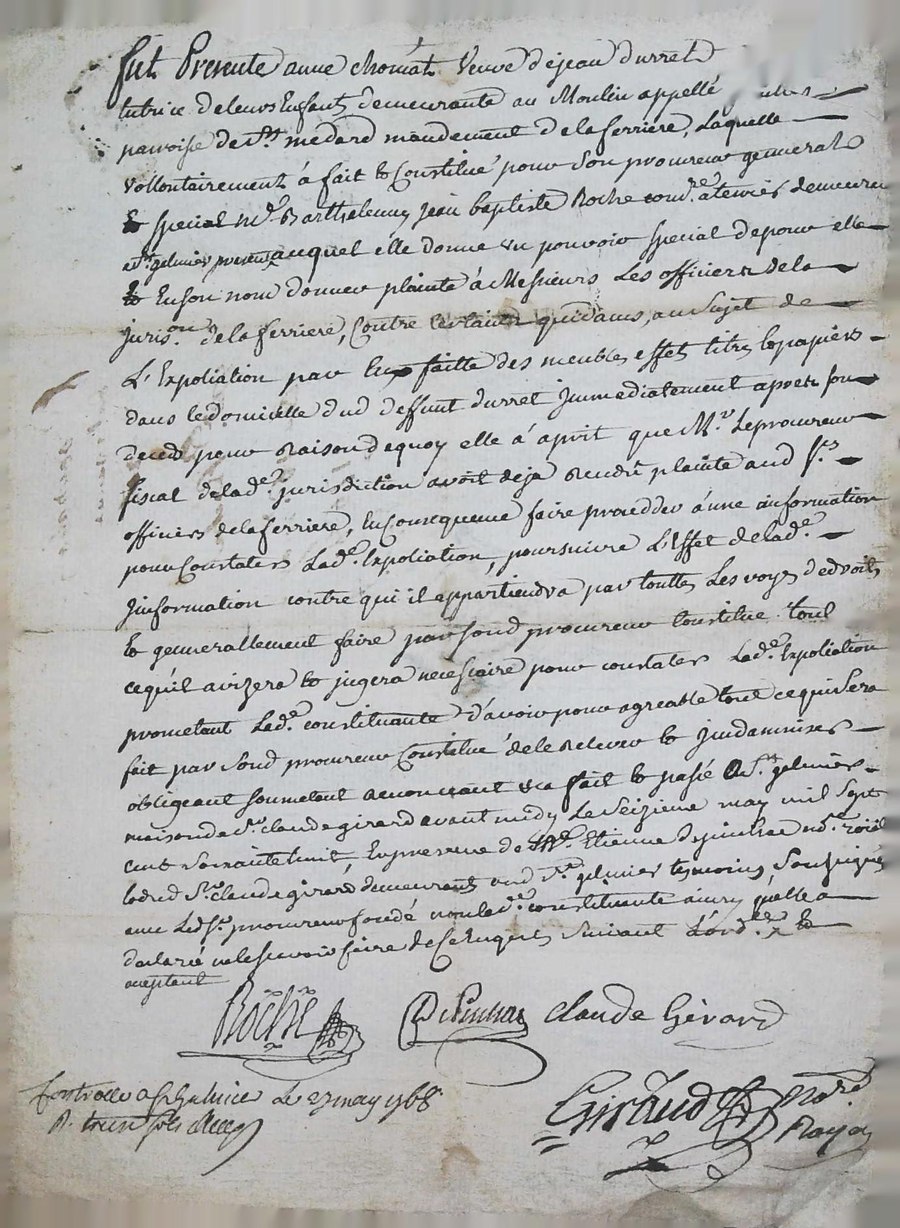 fut Presente anne chomat Veuve dejean durret
tutrice deleurs Enfants demeurante au Moulin appellé
parroise de St. medard mandement delaferriere, Laquelle
vollontairement á fait & Constitué pour Son procureur gennerals
& special Mr. Barthelemy jean baptiste Roche comre. aterriers demeurant
a St. gelmier present auquel elle donne un pouvoir special depour elle
& Enson nom donner plainte á Messieurs Les officiers dela
jurison. delaferriere, Contre certains quidams, au Sujet de
L'Expoliation par Eux faitte des meubles effets titres & papiers
dans ledomicille dud deffunt durret jmmediatement apres son
deced pour Raison dequoy elle á aprit que Mr. Leprocureur
fiscal delade. jurisdiction avoit deja Rendue plainte aud Srs.
officiers delaferriere, En Consequence faire proceder á une information
pour Constater Lade. Expoliation, poursuivre L'Effet delade.
jnformation contre qui il appartiendra par touttes Les voyes dedroits
& generallement faire par sond procureur Constitue tout
cequil avizera & jugera necessaire pour constater Lade. Expoliation
prometant Lade. constituante d'avoir pour agreable tout cequi Sera
fait par Sond procureur Constitué dele Relever & jndamniser
obligeant soumetant renoncant &ca fait & passé a St. gelmier
maison de Sr. claude girard avant midy Le Seizieme may mil Sept
cent Soixante huit, En presence de Me. Etienne Depinhac nore. roial
& dud Sr. claude girard demeurants aud St. gelmier temoins Soussignés
avec Led Sr. procureur fondé non lade. constituante ainsy quelle a
declaré ne le scavoir faire de ce Enquis Suivant L'ordce. &
aceptant
Roche Depinhac claude Gérard
Controlle a St. galmier Le 27 may 1768
R. treize sols
Giraud Nore.
Royal